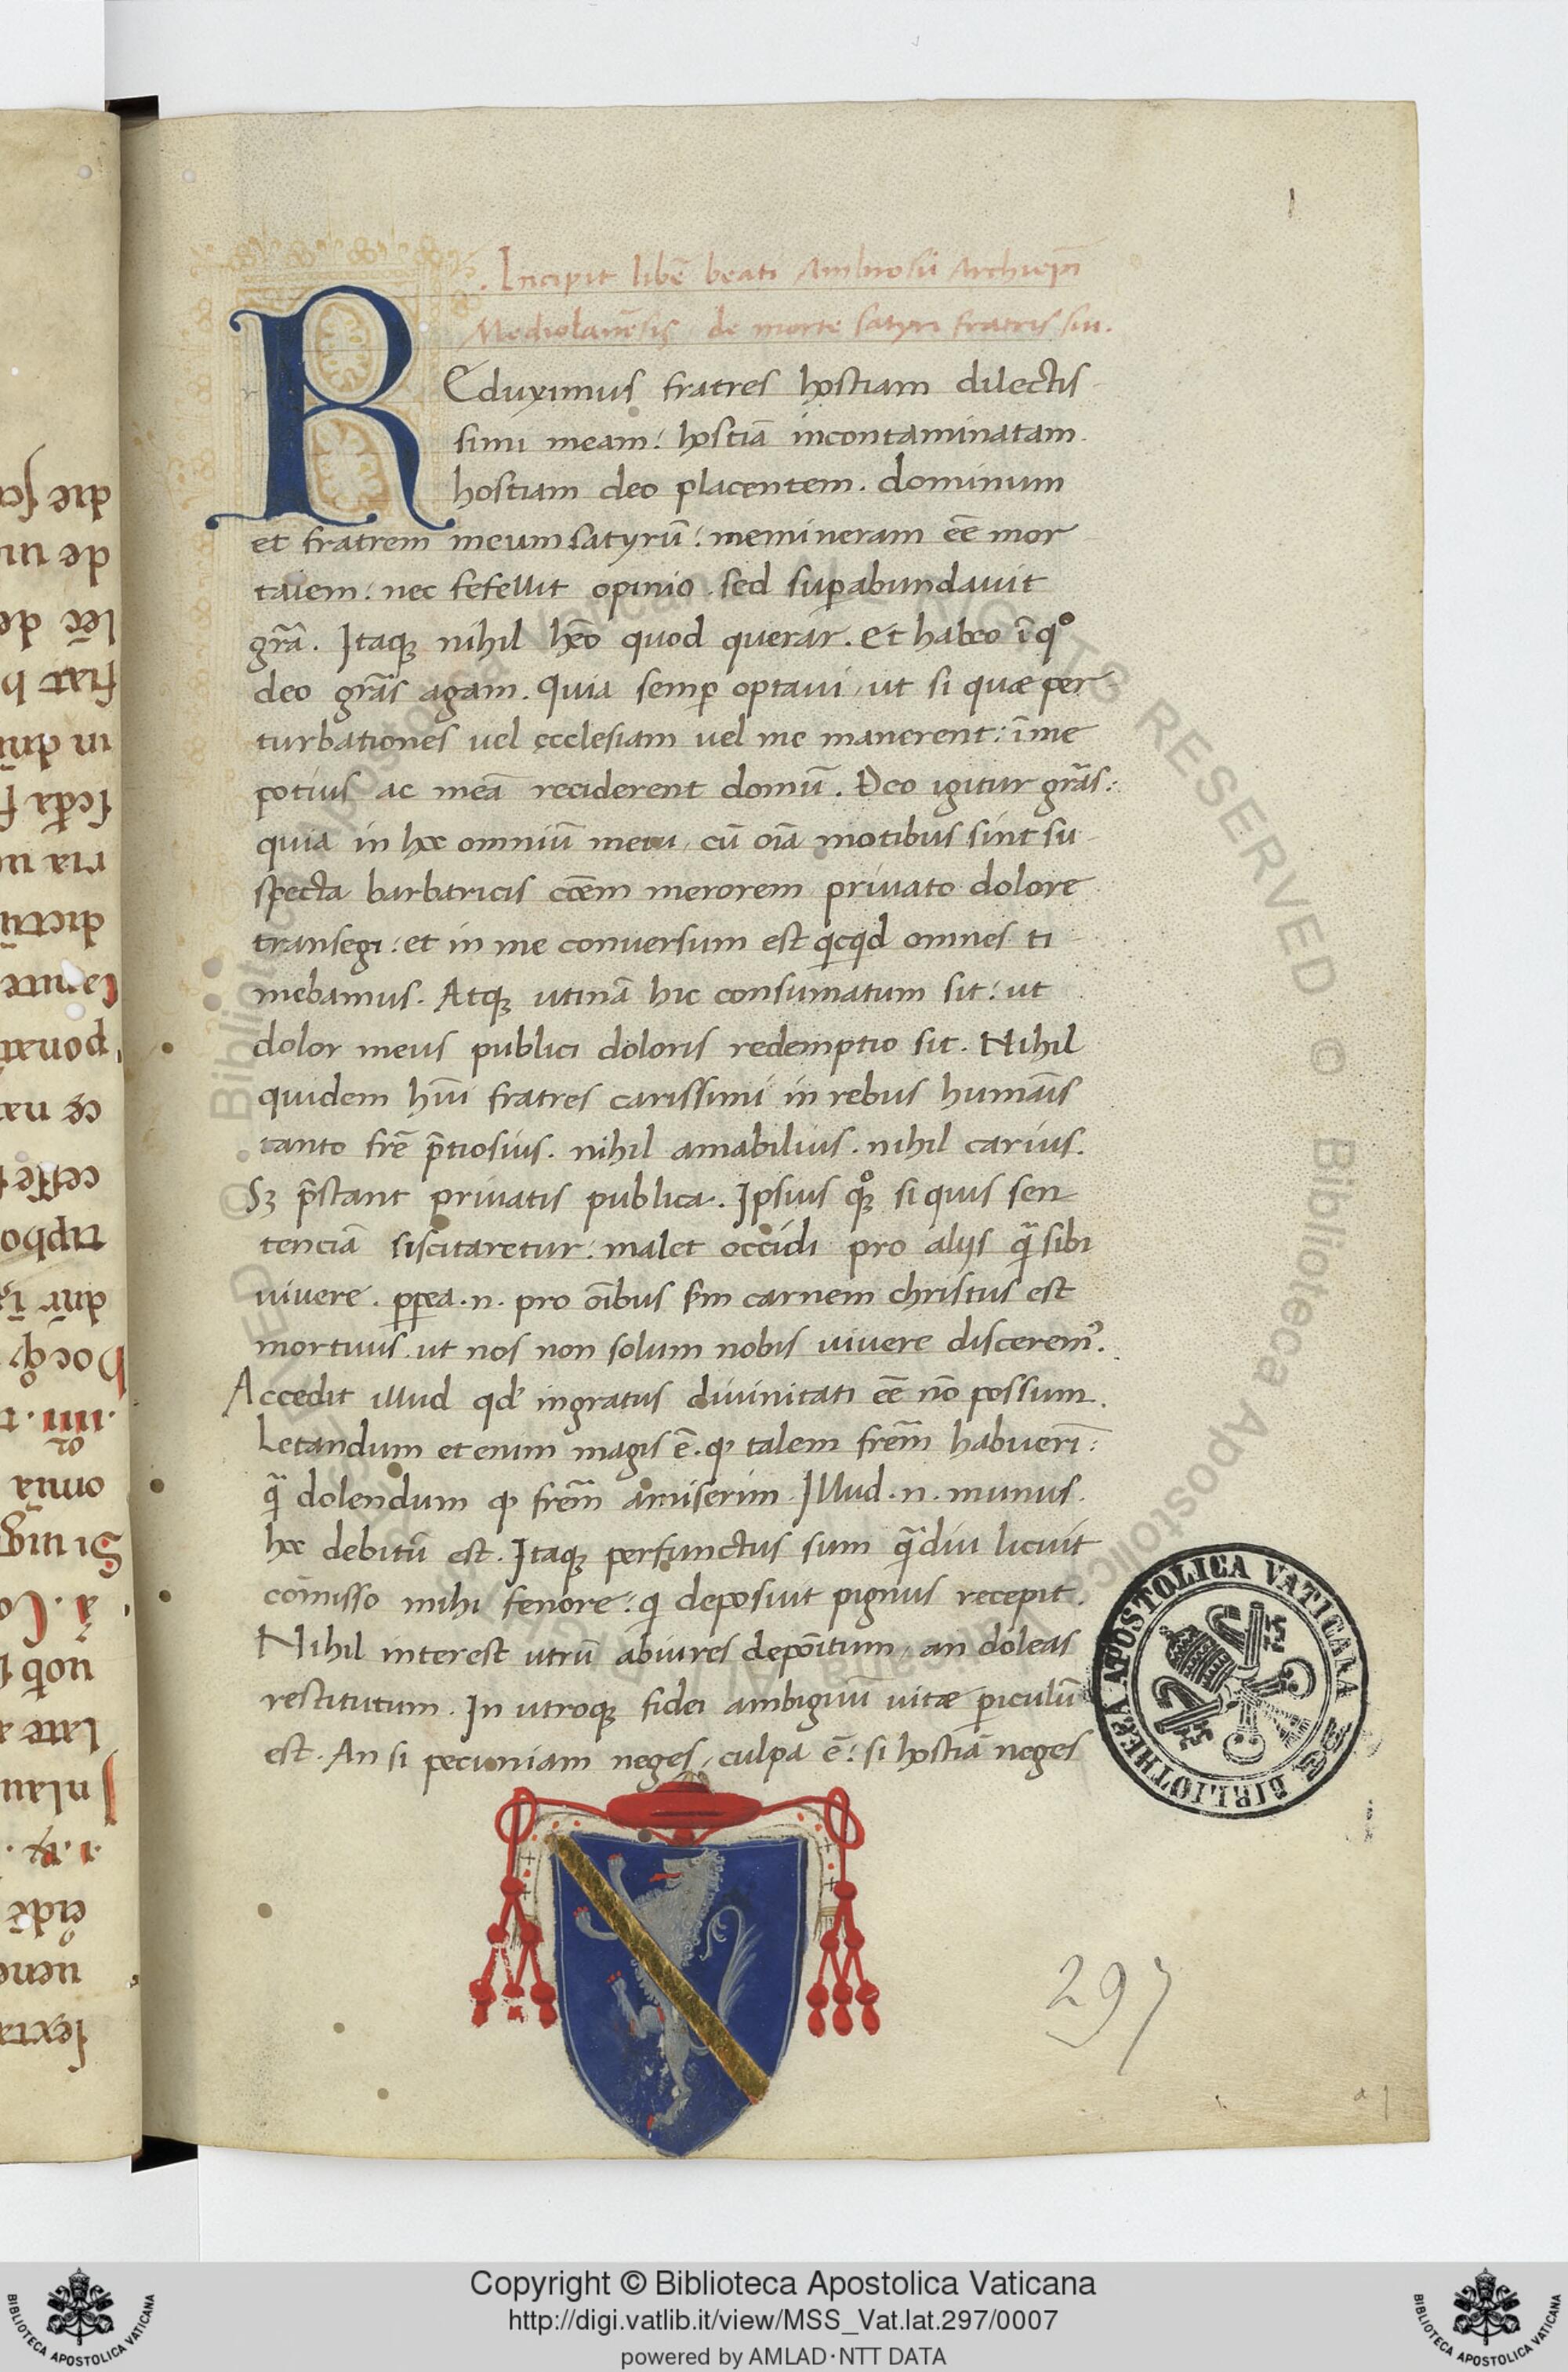 1
. Incipit libẽ beati Ambrosii Archiepĩ
Mediolanẽsis de morte satyri fratris sui.
REduximus fratres hostiam dilectis
simi meam: hostiã incontaminatam.
hostiam deo placentem. dominum
et fratrem meum satyrũ: memineram eẽ mor
talem: nec fefellit opinio. sed supabundauit
grã. Itaqꝫ nihil hẽo quod querar. et habeo ĩ qº
deo grãs agam. quia semp optaui, ut si quæ per
turbationes uel ecclesiam uel me manerent: ĩ me
potius ac meã reciderent domũ. Deo igitur grãs:
quia in hoc omniũ metu, cũ oĩa motibus sint su
specta barbaricis cõem merorem priuato dolore
transegi: et in me conuersum est qcqd omnes ti
mebamus. Atqꝫ utinã hic consumatum sit: ut
dolor meus publici doloris redemptio sit. Nihil
quidem hũi fratres carissimi in rebus humãis
tanto frẽ p̃tiosius. nihil amabilius. nihil carius.
Sꝫ p̃stant priuatis publica. Ipsius qºqꝫ si quis sen
tenciã siscitaretur: malet occidi pro alijs q̃ sibi
uiuere. ꝓpea .n. pro oĩbus sm carnem christus est
mortuus. ut nos non solum nobis uiuere discerem⁹.
Accedit illud qd' ingratus diuinitati eẽ nõ possum.
Letandum etenim magis ẽ. ꝙ talem frẽm habuerĩ:
q̃ dolendum ꝙ frẽm amiserim. Illud .n. munus.
hoc debitũ est. Itaqꝫ perfunctus sum q̃diu licuit
cõmisso mihi fenore: q deposuit pignus recepit.
Nihil interest utrũ abiures depoĩtum, an doleas
restitutum. In utroqꝫ fidei ambiguũ uitæ piculũ
est. An si pecuniam neges, culpa ẽ: si hostiã neges
BIBLIOTHECA APOSTOLICA VATICANA
297
a 1
Copyright © Biblioteca Apostolica Vaticana
http://digi.vatlib.it/view/MSS_Vat.lat.297/0007
powered by AMLAD·NTT DATA
BIBLIOTECA APOSTOLICA VATICANA
BIBLIOTECA APOSTOLICA VATICANA